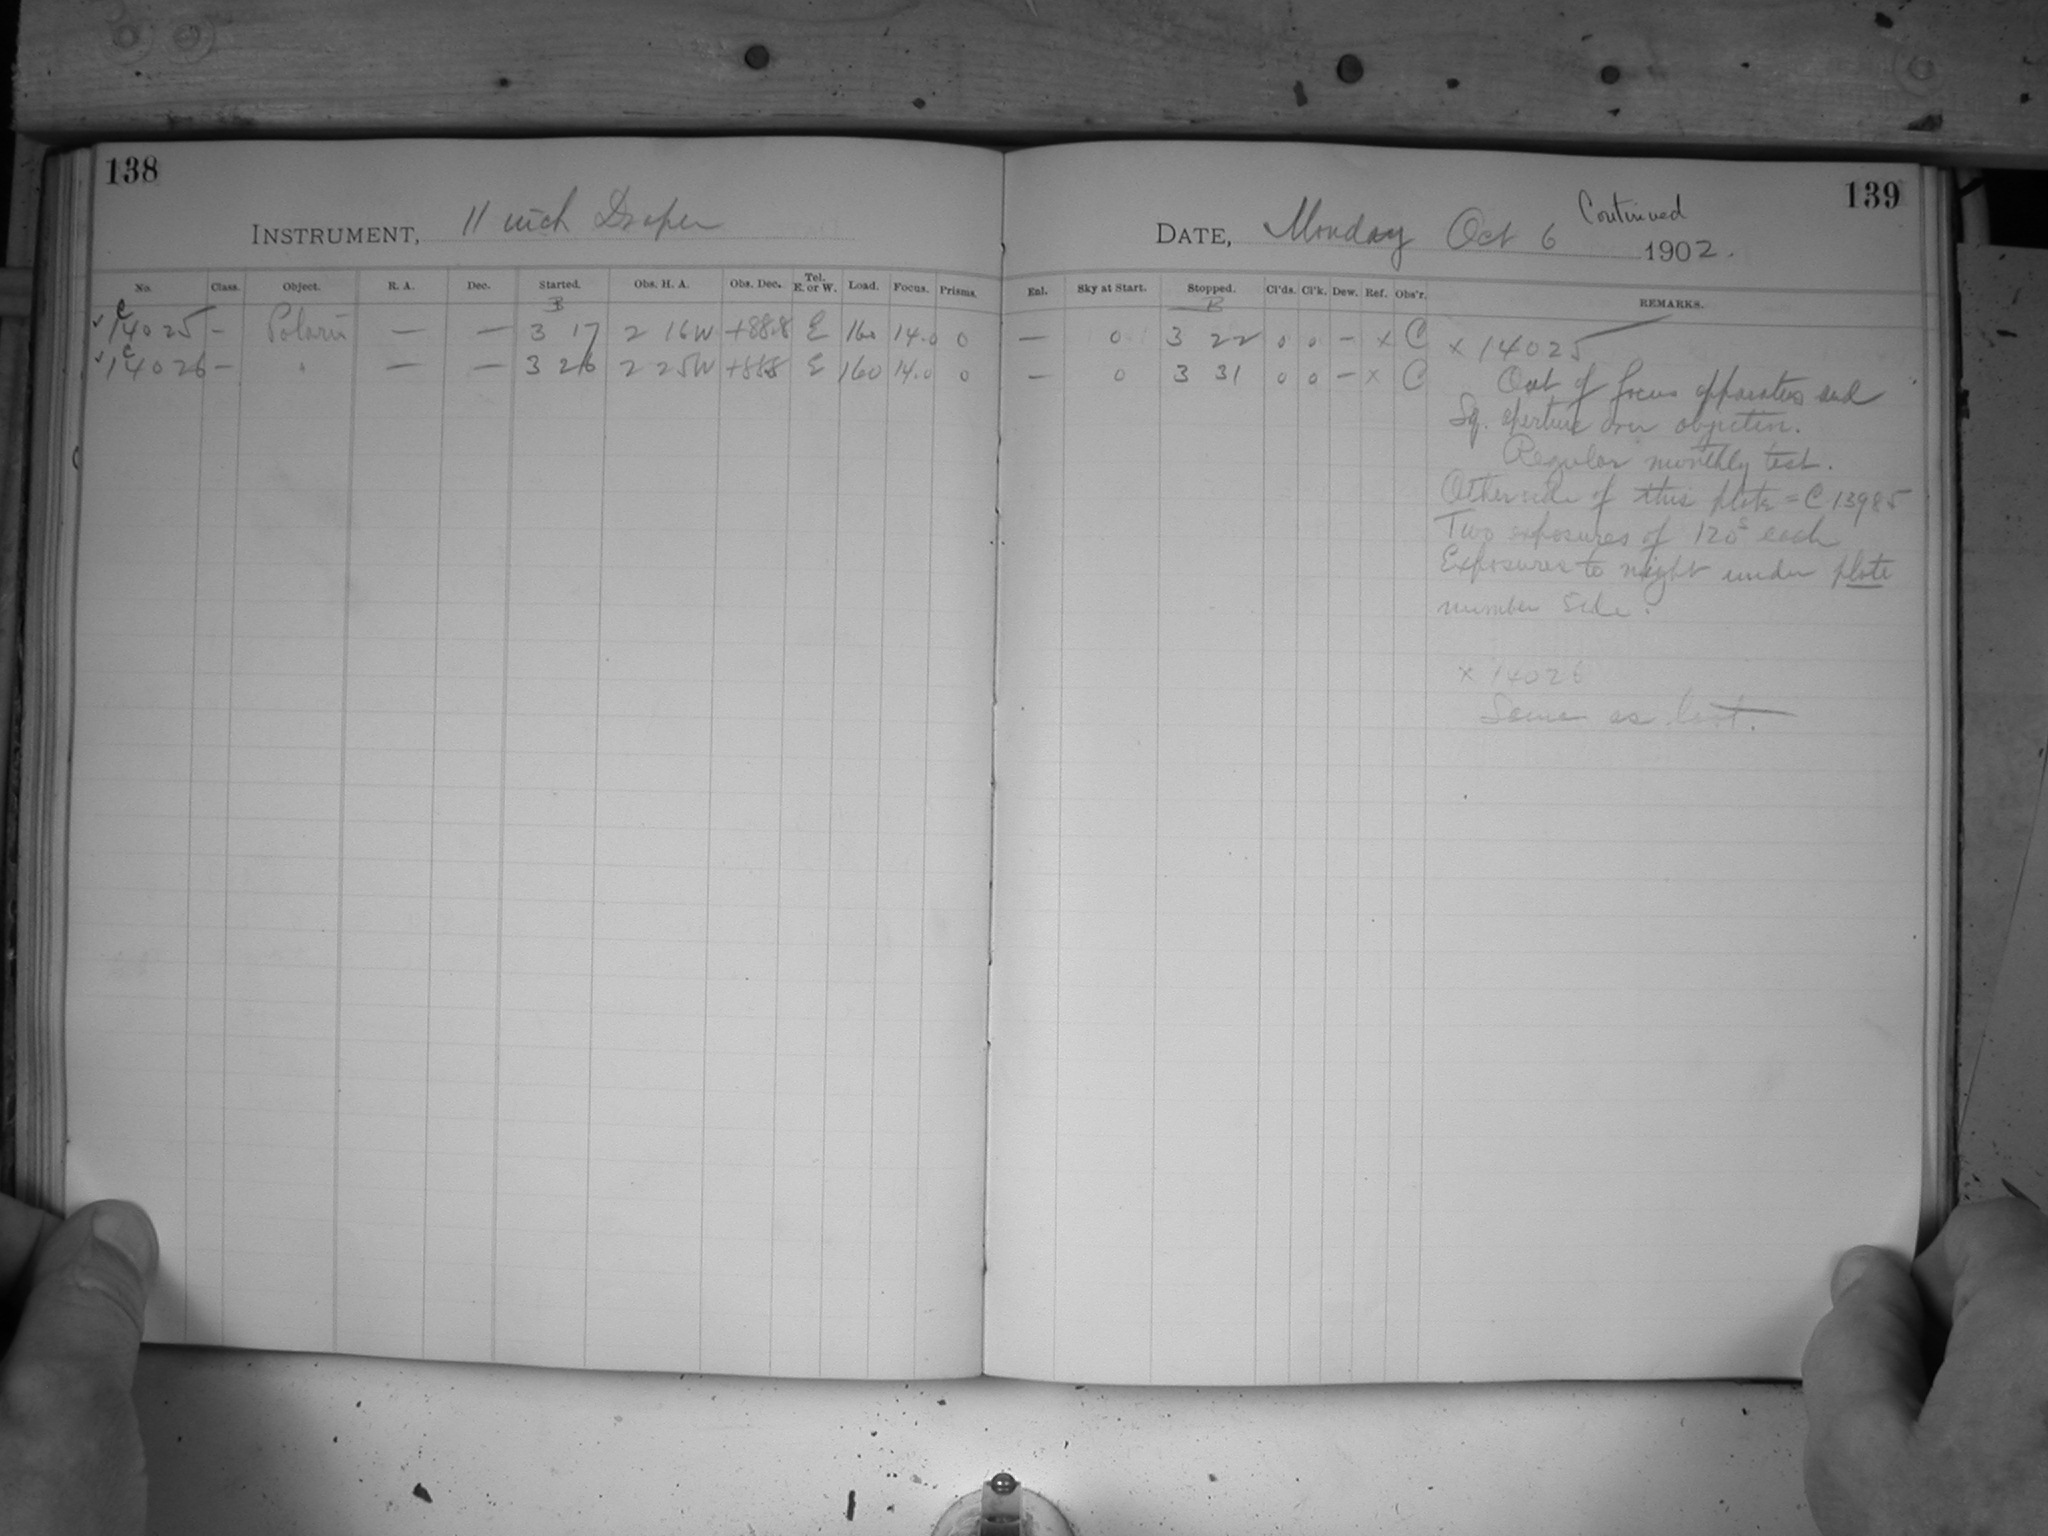 138
INSTRUMENT, 11 inch Draper
No. Class. Object. R. A. Dec. Started. Obs. H. A. Obs. Dec. Tel. E. or W. Load. Focus. Prisms.
B
✓ C 14025 — Polaris — — 3 17 2 16W +88.8 E 160 14.0 0
✓ C 14026 — " — — 3 26 2 25W +88.8 E 160 14.0 0
139
DATE, Monday Oct 6 Continued 1902.
Enl. Sky at Start. Stopped. Cl'ds. Cl'k. Dew. Ref. Obs'r. REMARKS.
B
— 0 3 22 0 0 — x C
— 0 3 31 0 0 — x C
x 14025
Out of focus apparatus and
Sq. aperture over objective.
Regular monthly test.
Other side of this plate = C 13985
Two exposures of 120s each
Exposures to night under plate
number side.
x 14026
Same as last.